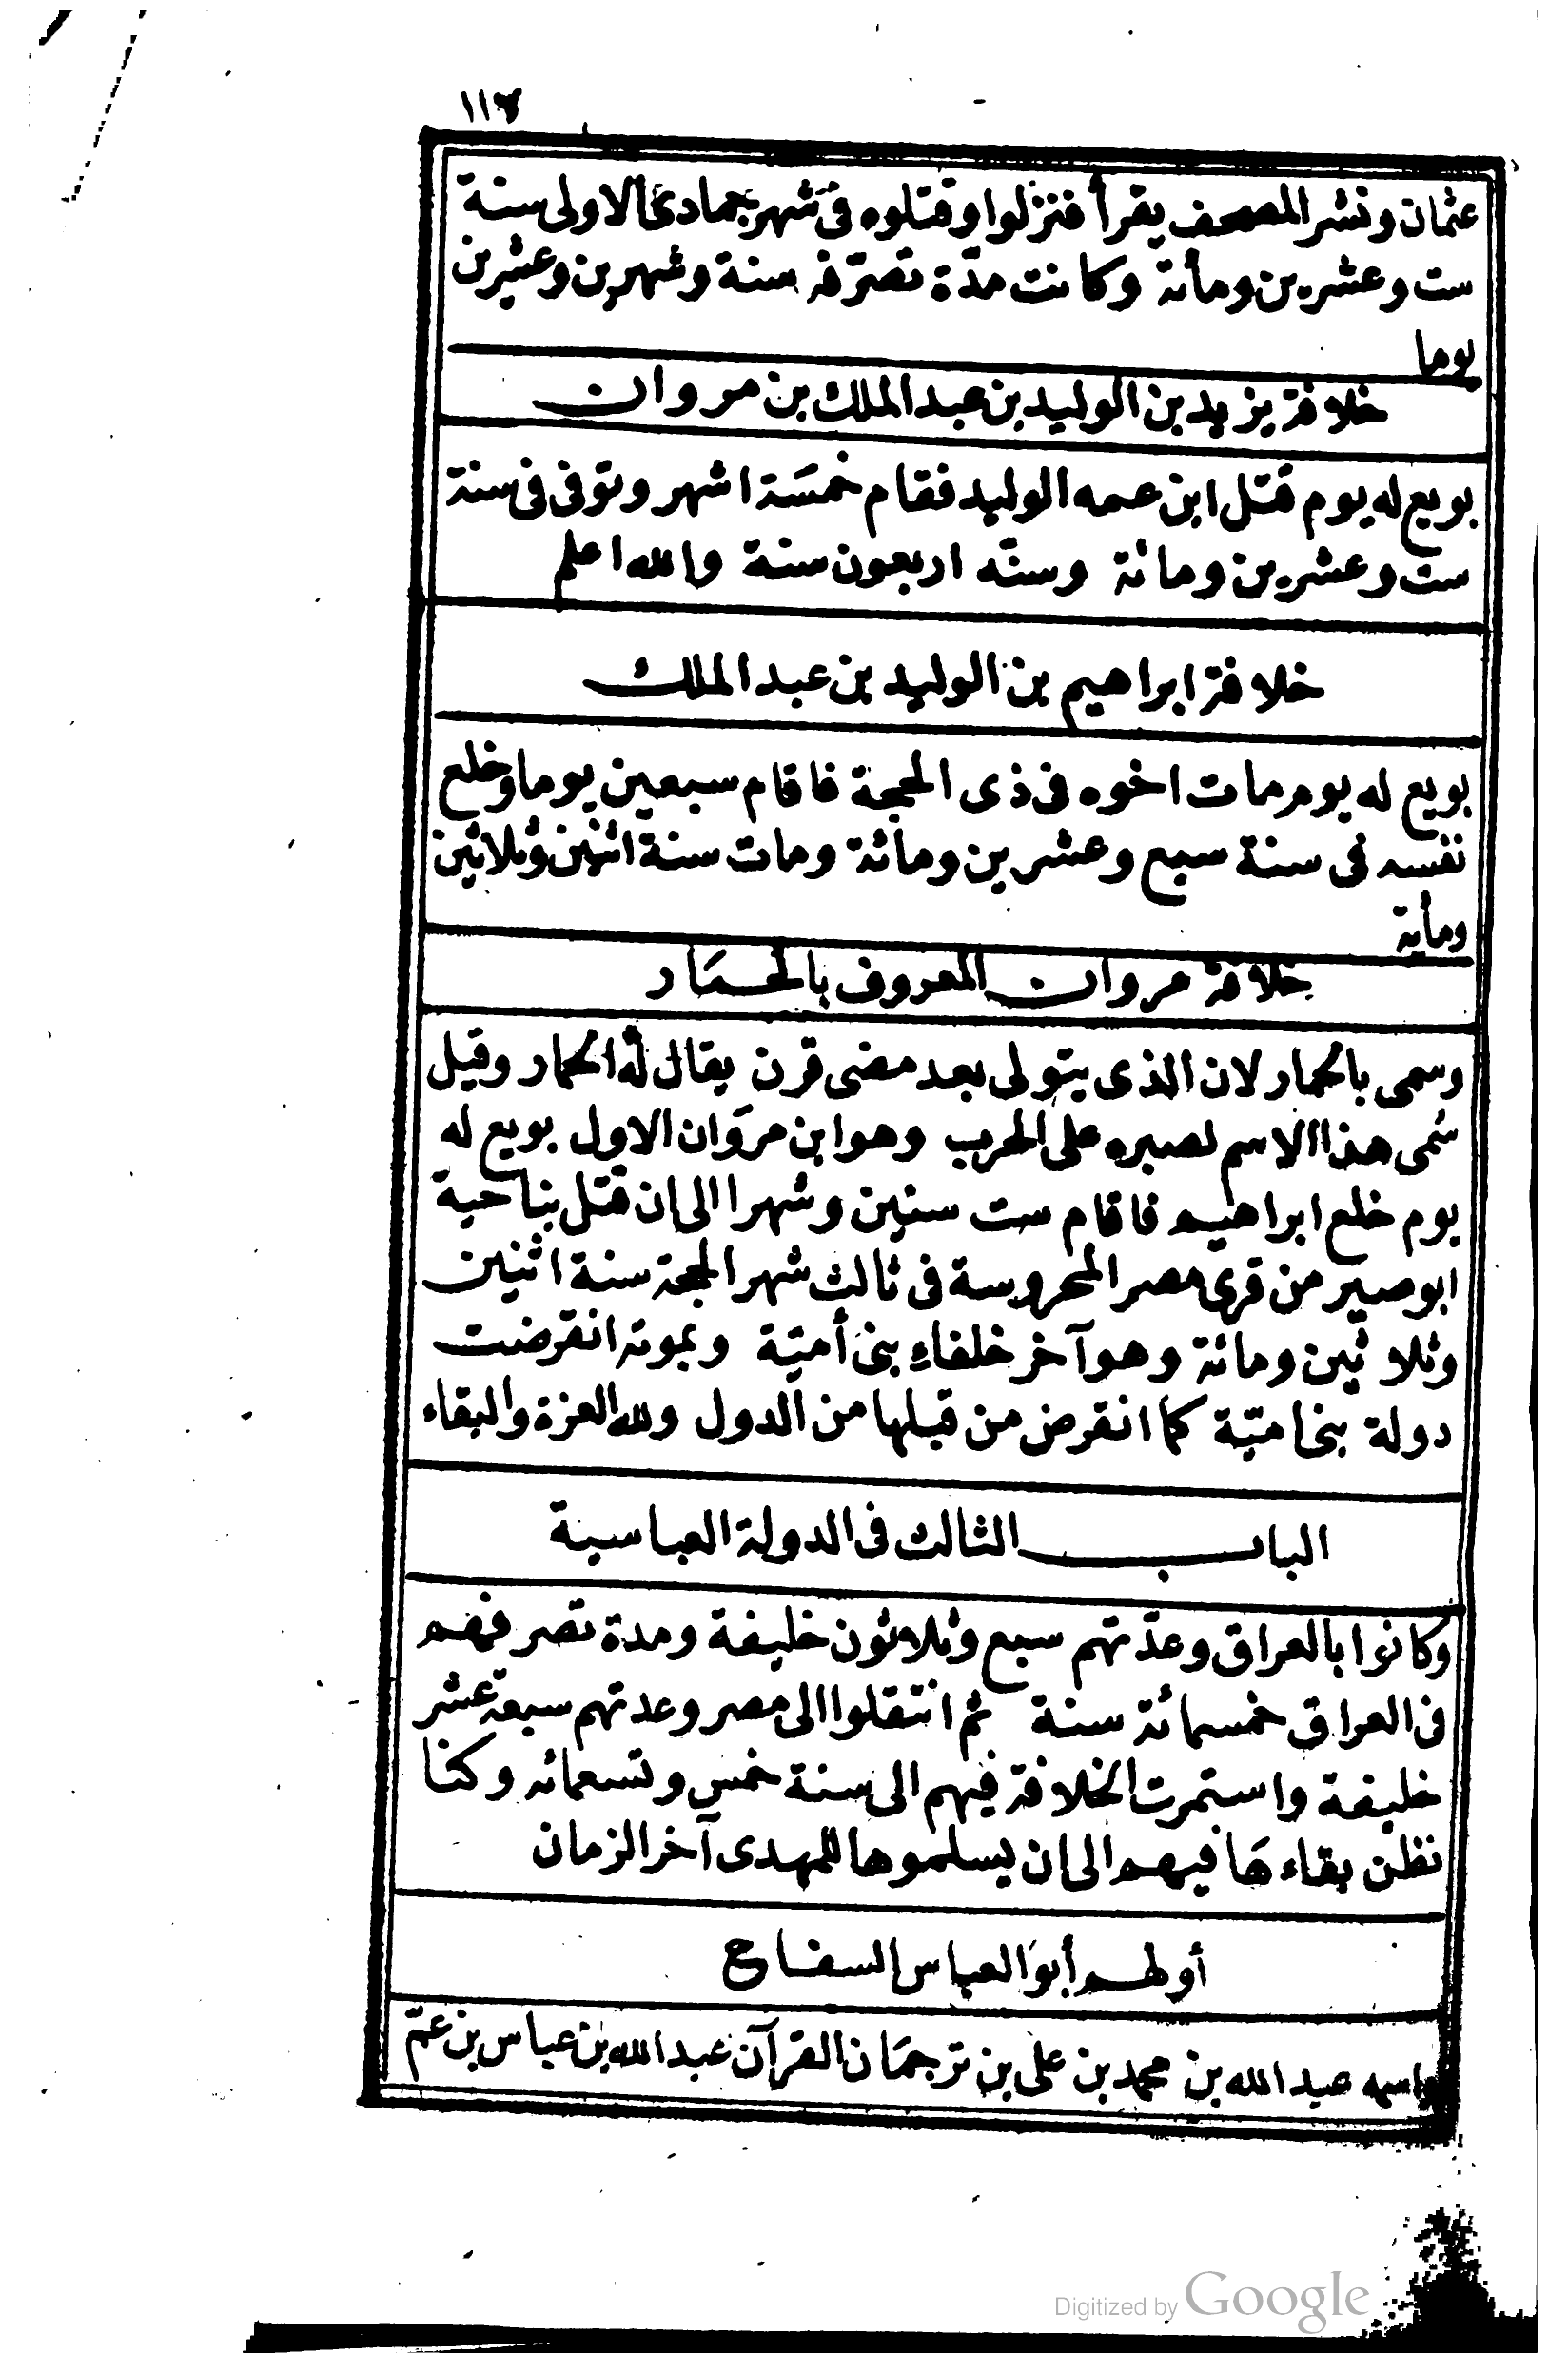 ١١٧
عثمان ونشر المصحف يقرأ فنزلوا وقتلوه فى شهر جمادى الاولى سنة
ست وعشرين ومأئة وكانت مدّة تصرّفه سنة وشهرين وعشرين
يوما
خلافة يزيد بن الوليد بن عبد الملك بن مروان
بويع له يوم قتل ابن عمه الوليد فقام خمسَة اشهر وتوفى فى سنة
ست وعشرين ومائة وسنّه اربعون سنة والله اعلم
خلافة ابراهيم بن الوليد بن عبد الملك
بويع له يوم مات اخوه فى ذى الحجة فاقام سبعين يوما وخلع
نفسه فى سنة سبع وعشرين ومائة ومات سنة اثنين وثلاثين
ومأية
خلافة مروان المعروف بالحمَار
وسمى بالحمار لان الذى يتولى بعد مضى قرن يقال له الحمار وقيل
سُمى هذا الاسم لصبره على الحرب وهو ابن مروَان الاول بويع له
يوم خلع ابراهيم فاقام ست سنين وشهرا الى ان قتل بناحية
ابوصير من قرى مصر المحروسة فى ثالث شهر الحجة سنة اثنين
وثلاثين ومائة وهو آخر خلفاءِ بنى أميّة وبموته انقرضت
دولة بنى اميّة كما انقرض من قبلها من الدول ولله العزة والبقاء
الباب الثالث فى الدولة العباسية
وكانوا بالعراق وعدّتهم سبع وثلاثون خليفة ومدة تصرفهم
فى العراق خمسمائة سنة ثم انتقلوا الى مصر وعدتهم سبعة عشر
خليفة واستمرت الخلافة فيهم الى سنة خمس وتسعمائه وكنا
نظن بقاءهَا فيهم الى ان يسلموها للمهدى آخر الزمان
أولهم أبو العباس السفاح
واسمه عبد الله بن محمد بن على بن ترجمَان القرآن عبد الله بن عباس بن عمّ
Digitized by Google